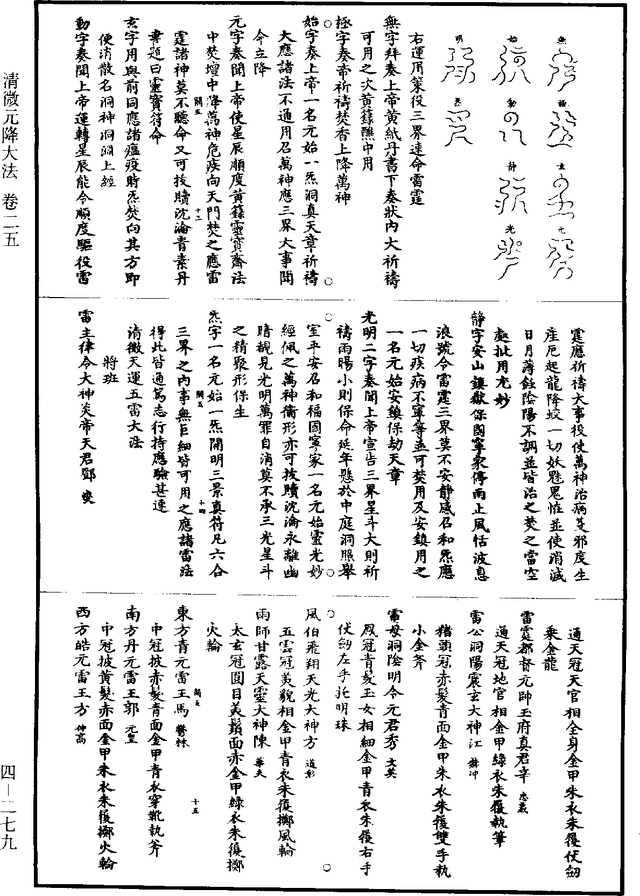 清微元降大法　卷二五
四—二七九
無
極
玄
元
始
動
靜
光
明
炁
右運用策役三界速命雷霆
無字拜奏上帝黃紙丹書下奏狀內大祈禱
可用之次黃籙醮中用
極字奏帝祈禱焚香上降萬神
始字奏上帝一名元始一炁洞真天章祈禱
大應諸法不過用召萬神應三界大事聞
令立降
元字奏聞上帝使星辰順度黃籙靈寶齋法
中焚壇中降萬神危疾向天門焚之應雷
霆諸神莫不聽命又可拔贖沉淪青素丹
書題曰靈寶符命
玄字用與前同應諸瘟疫時炁焚向其方即
便消散名洞神洞淵上經
動字奏聞上帝運轉星辰能令順度驅役雷
霆應祈禱大事役使萬神治病芟邪度生
產厄起龍降蛟一切妖魅鬼怪並使消滅
日月薄蝕陰陽不調並皆治之焚之當空
處批用尤妙
靜字安山鎮嶽保國寧家停雨止風恬波息
浪號令雷霆三界莫不安靜感召和炁應
一切疾病不寧等並可焚用及安鎮用之
一名元始安鎮保劫天章
光明二字奏聞上帝宣告三界星斗大則祈
禱雨暘小則保命延年懸於中庭洞照舉
室平安召和福國寧家一名元始靈光妙
經佩之萬神衛形亦可拔贖沉淪永離幽
暗覩見光明萬罪自消莫不承三光星斗
之精聚形保生
炁字一名元始一炁開明三景真符凡六合
三界之內事無巨細皆可用之應諸雷法
得此皆通篤志行持應驗甚速
清微天運五雷大法
將班
雷主律令大神炎帝天君鄧　燮
通天冠天官相全身金甲朱衣朱履仗劍
乘金龍
雷霆都督元帥玉府真君辛　忠義
通天冠地官相金甲綠衣朱履執筆
雷公洞陽震玄大神江　赫冲
豬頭冠赤髮青面金甲朱衣朱履雙手執
小金斧
電母洞陰明令元君秀　文英
鳳冠青髮玉女相細金甲青衣朱履右手
伏劍左手托明珠
風伯飛翔天光大神方　道彰
五雲冠美貌相金甲青衣朱履擲風輪
雨師甘露天靈大神陳　華夫
太玄冠圓目美鬚面赤金甲綠衣朱履擲
火輪
東方青元雷王馬　鬱林
中冠披赤髮青面金甲青衣穿靴執斧
南方丹元雷王郭　元皇
中冠披黃髮赤面金甲朱衣朱履擲火輪
西方皓元雷王方　仲高